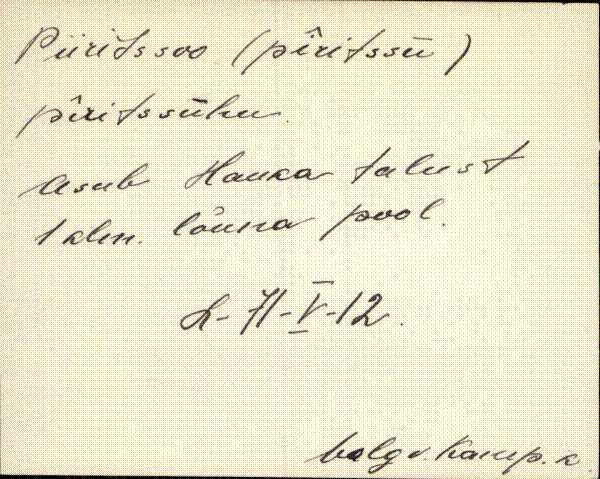 Piiritssoo (pîritssū)
pîritssūhu.
Asub Hauka talust
1 klm. lõuna pool.
L-71-V-12.
Valg v. Kamp. k.